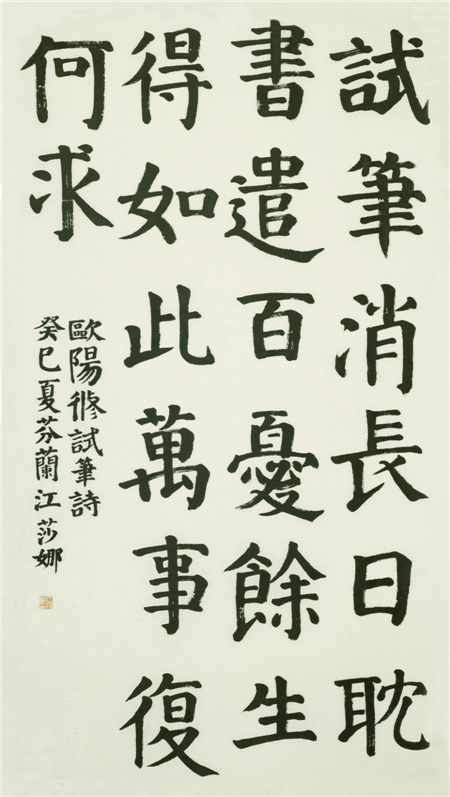 試筆消長日耽
書遣百憂餘生
得如此萬事復
何求
歐陽修試筆詩
癸巳夏芬蘭江莎娜